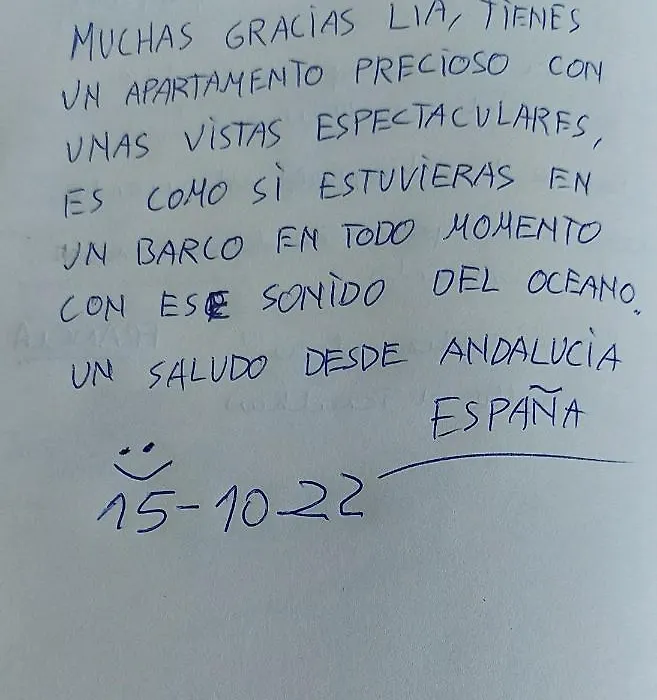 MUCHAS GRACIAS LIA, TIENES
UN APARTAMENTO PRECIOSO CON
UNAS VISTAS ESPECTACULARES,
ES COMO SI ESTUVIERAS EN
UN BARCO EN TODO MOMENTO
CON ESE SONIDO DEL OCEANO.
UN SALUDO DESDE ANDALUCIA
ESPAÑA
15-10-22